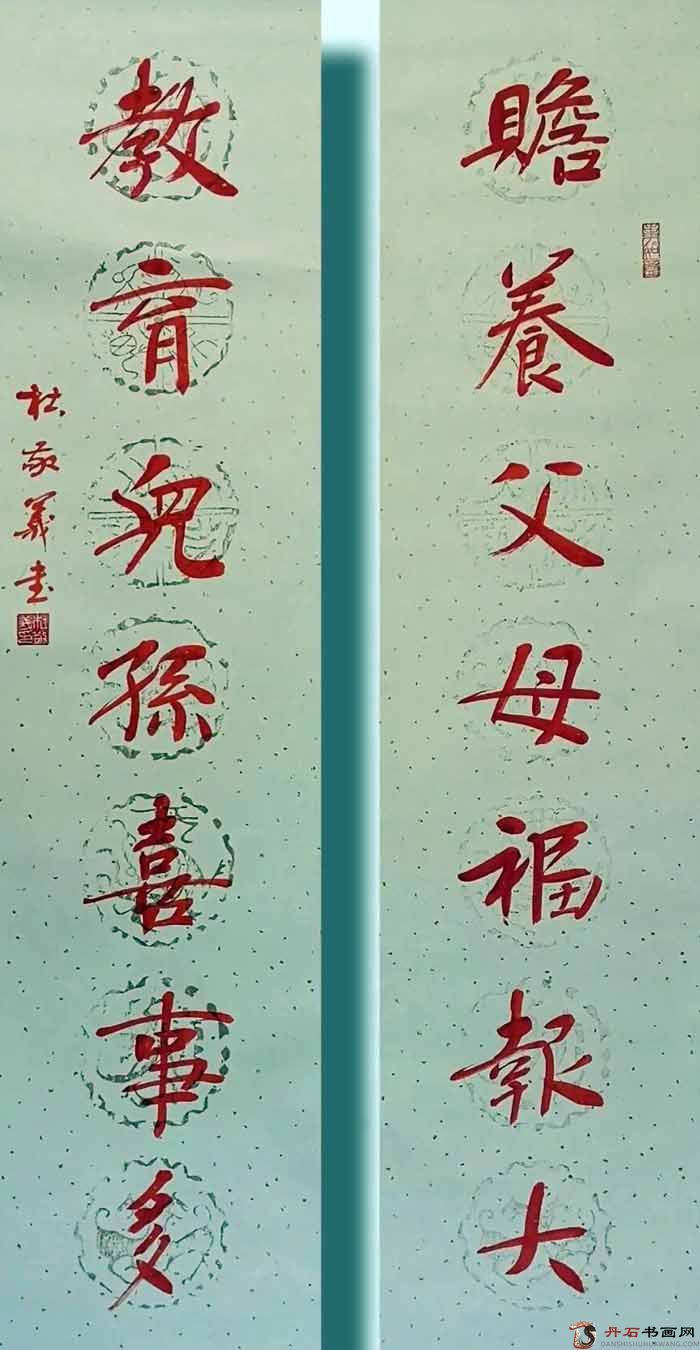 贍養父母福報大
教育兒孫喜事多
杜敬義书
丹石书画网
DANSHISHUHUAWANG.COM